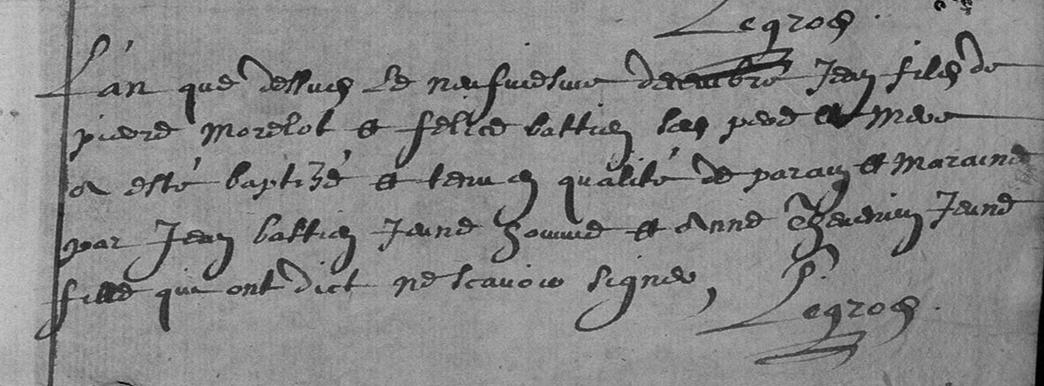 Legros
L'an que dessus le neufviesme decembre Jean fils de
pierre Morelot et felice bastien ses pere et mere
a esté baptizé et tenu en qualité de parain et maraine
par Jean bastien Jeune homme et Anne Thevenin Jeune
fille qui ont dict ne scavoir signer,
Legros